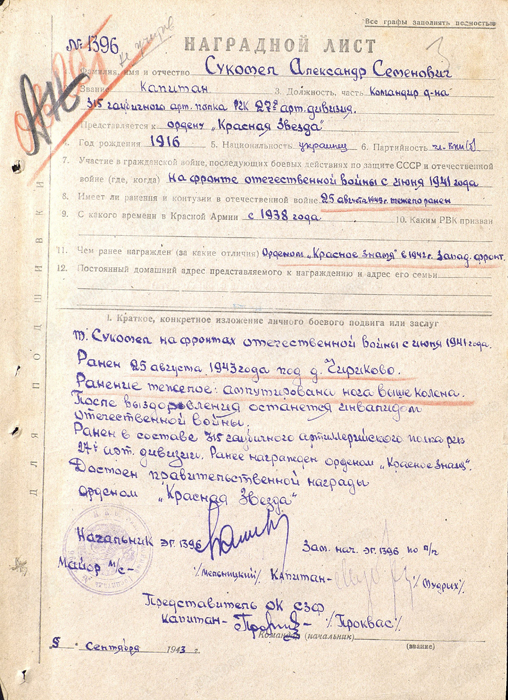 Все графы заполнять полностью
№ 1396
НАГРАДНОЙ ЛИСТ
Фамилия, имя и отчество Сукомел Александр Семенович
Звание Капитан 3. Должность, часть Командир д-на
315 гаубичного арт. полка РГК 27ой арт. дивизия.
Представляется к ордену „Красная Звезда"
4. Год рождения 1916 5. Национальность украинец 6. Партийность чл. ВКП(б)
7. Участие в гражданской войне, последующих боевых действиях по защите СССР и отечественной
войне (где, когда) На фронте отечественной войны с июня 1941 года
8. Имеет ли ранения и контузии в отечественной войне 25 августа 1943 г. тяжело ранен
9. С какого времени в Красной Армии с 1938 года 10. Каким РВК призван
11. Чем ранее награжден (за какие отличия) Орденом „Красное Знамя" в 1942 г. Запад. фронт.
12. Постоянный домашний адрес представляемого к награждению и адрес его семьи
I. Краткое, конкретное изложение личного боевого подвига или заслуг
т. Сукомел на фронтах отечественной войны с июня 1941 года.
Ранен 25 августа 1943 года под д. Чириково.
Ранение тяжелое: ампутирована нога выше колена.
После выздоровления останется инвалидом
отечественной войны.
Ранен в составе 315 гаубичного артиллерийского полка РГК
27ой арт. дивизии. Ранее награжден орденом „Красное Знамя".
Достоен правительственной награды
орденом „Красная Звезда"
Начальник ЭГ. 1396 Зам. нач. ЭГ. 1396 по п/ч
Майор м/с - /Мельницкий/ Капитан - /Мудрых/
Представитель ОК СЗФ
Капитан - /Проквас/
Командир (начальник)
(звание)
8 Сентября 1943 г.
ДЛЯ ПОДШИВКИ